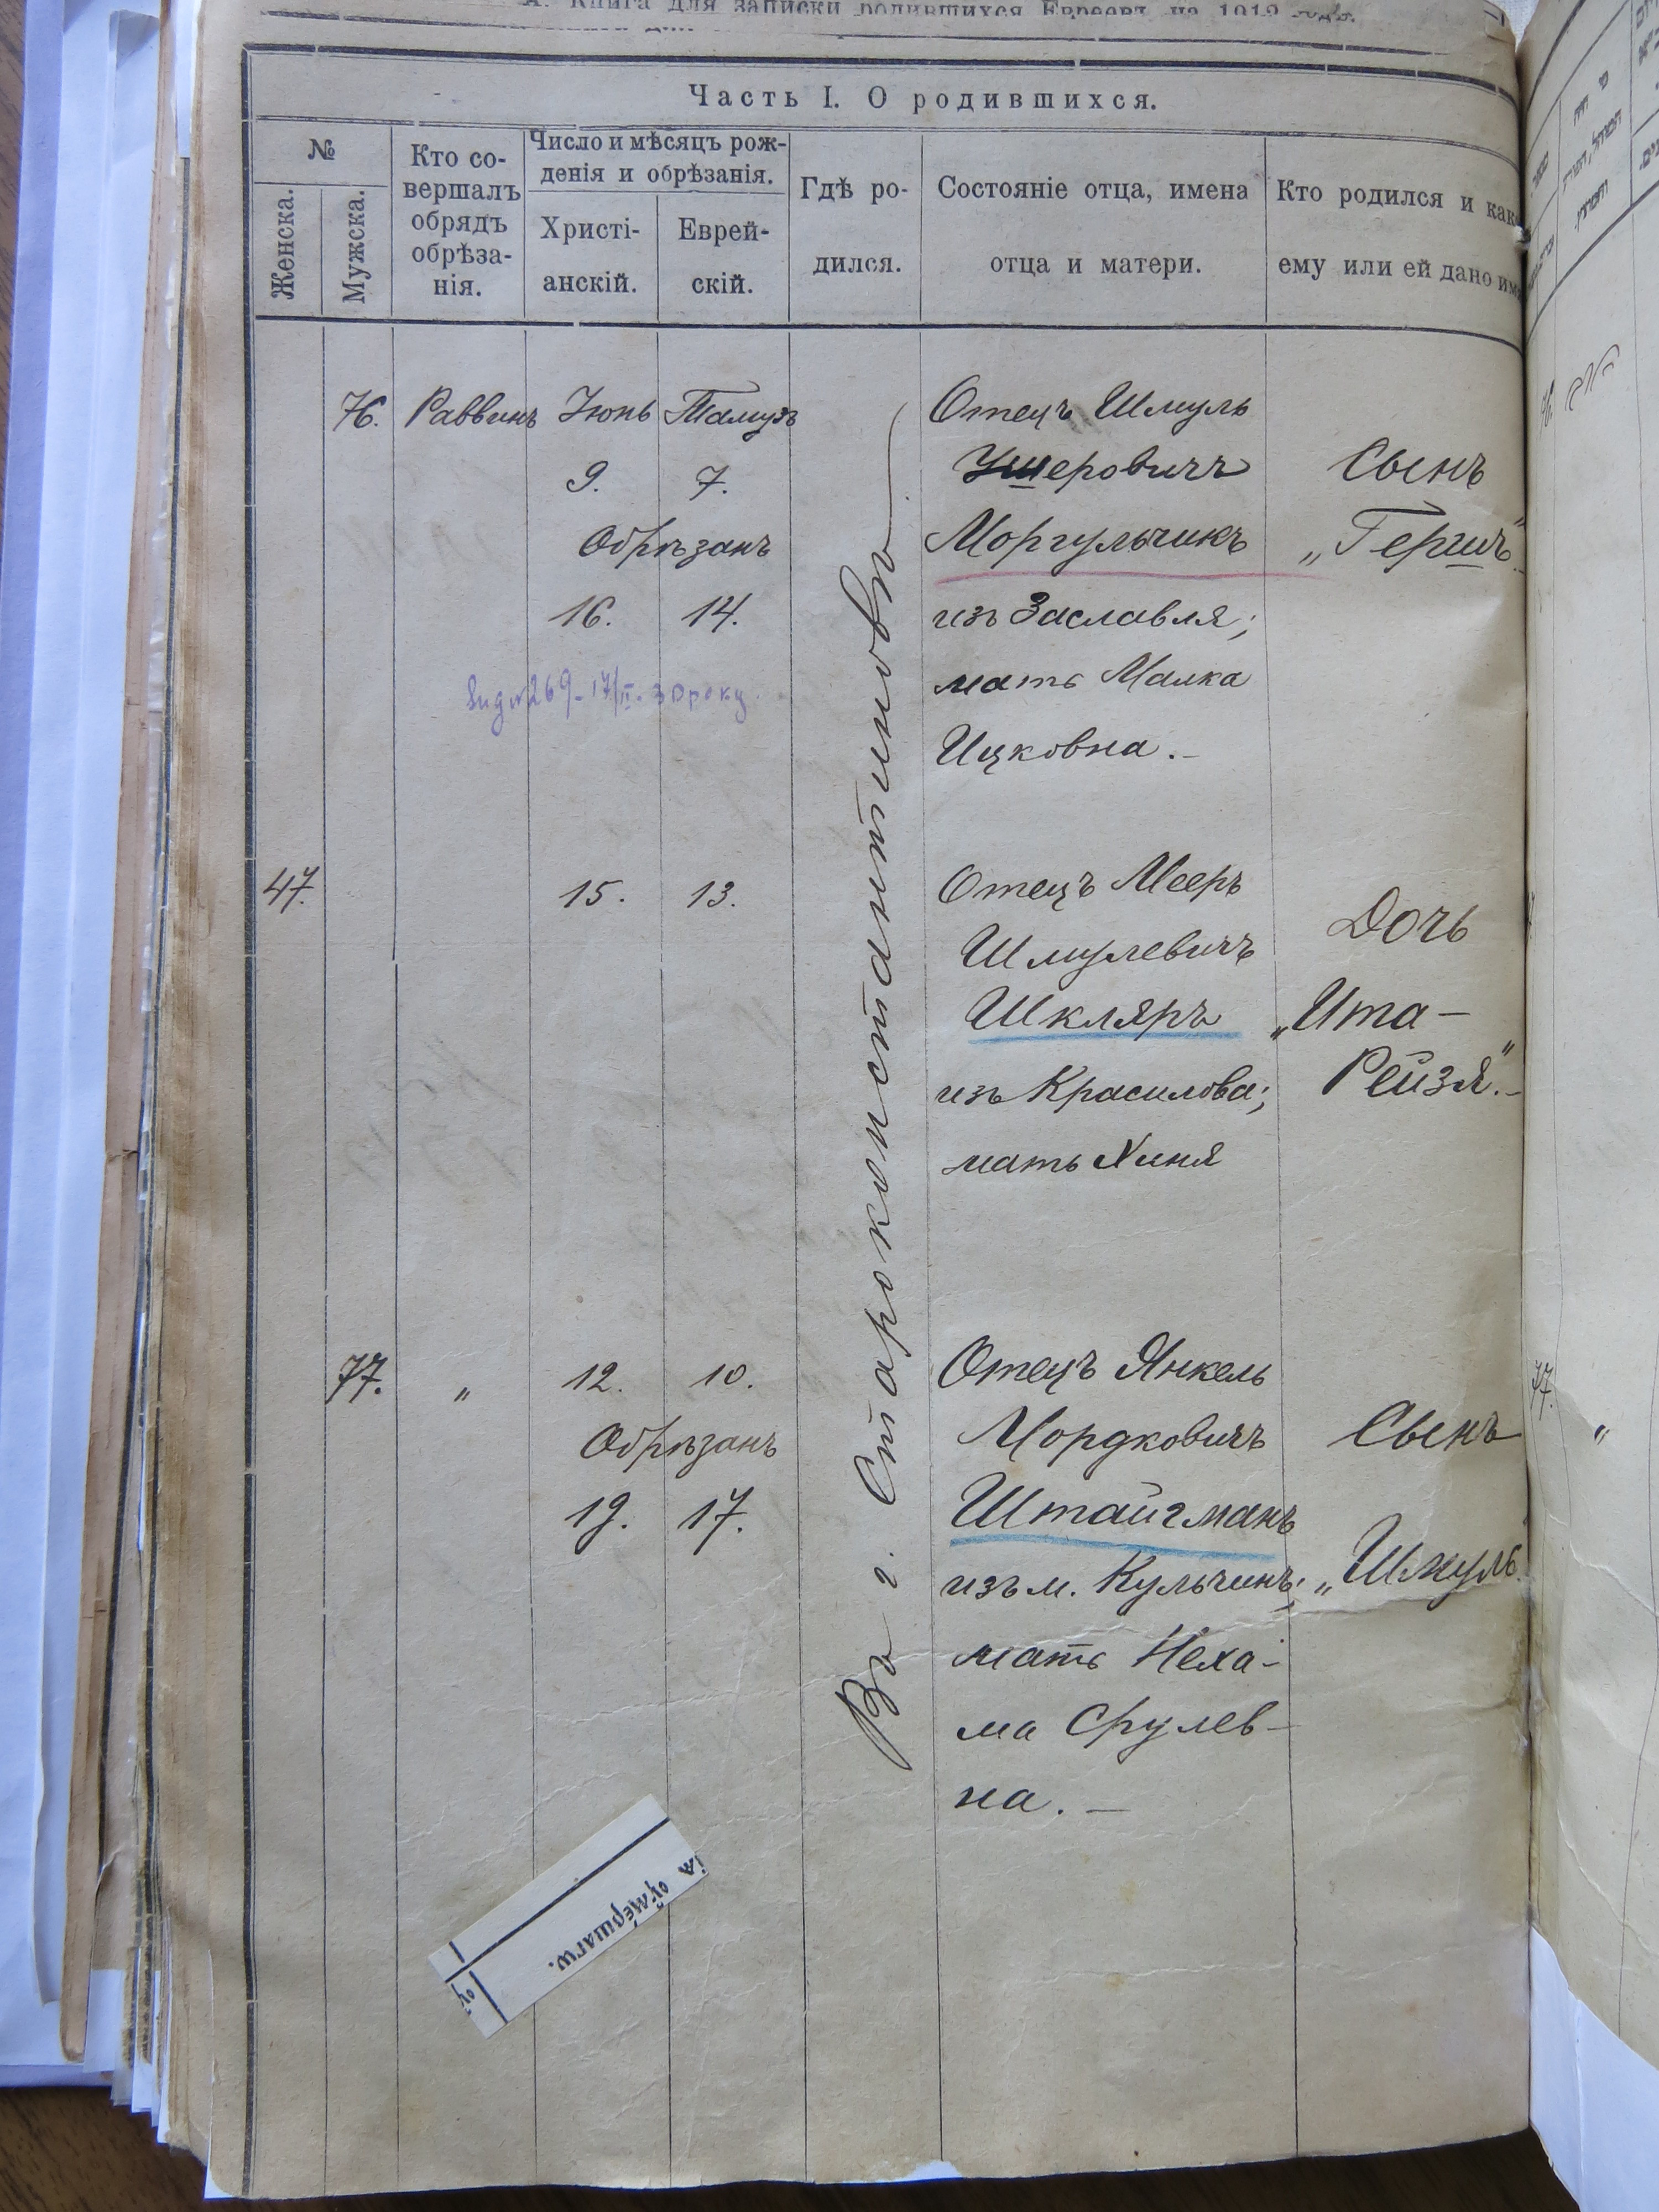 А. Книга для записки родившихся Евреевъ на 1912 годъ.
Часть I. О родившихся.
№
Женска.
Мужска.
Кто со-
вершалъ
обрядъ
обрѣза-
нія.
Число и мѣсяцъ рож-
денія и обрѣзанія.
Христі-
анскій.
Еврей-
скій.
Гдѣ ро-
дился.
Состояніе отца, имена
отца и матери.
Кто родился и как
ему или ей дано им
76. Раввинъ Іюнь Тамузъ Отецъ Шмуль
9. 7. Ушеровичъ Сынъ
Обрѣзанъ Моргульчикъ „Гершъ".
16. 14. изъ Заславля;
мать Малка
№269-17/II-30 року.
Ицковна.-
Въ г. Староконстантиновѣ
47. 15. 13. Отецъ Мееръ
Шмулевичъ Дочь
Шкляръ „Ита-
изъ Красилова; Рейзя".-
мать Хиня
77. „ 12. 10. Отецъ Янкель
Обрѣзанъ Мордковичъ Сынъ
19. 17. Штайгманъ
изъ м. Кульчинъ; „Шмуль
мать Неха-
ма Срулев-
на.-
оумершагѡ.
77.
„